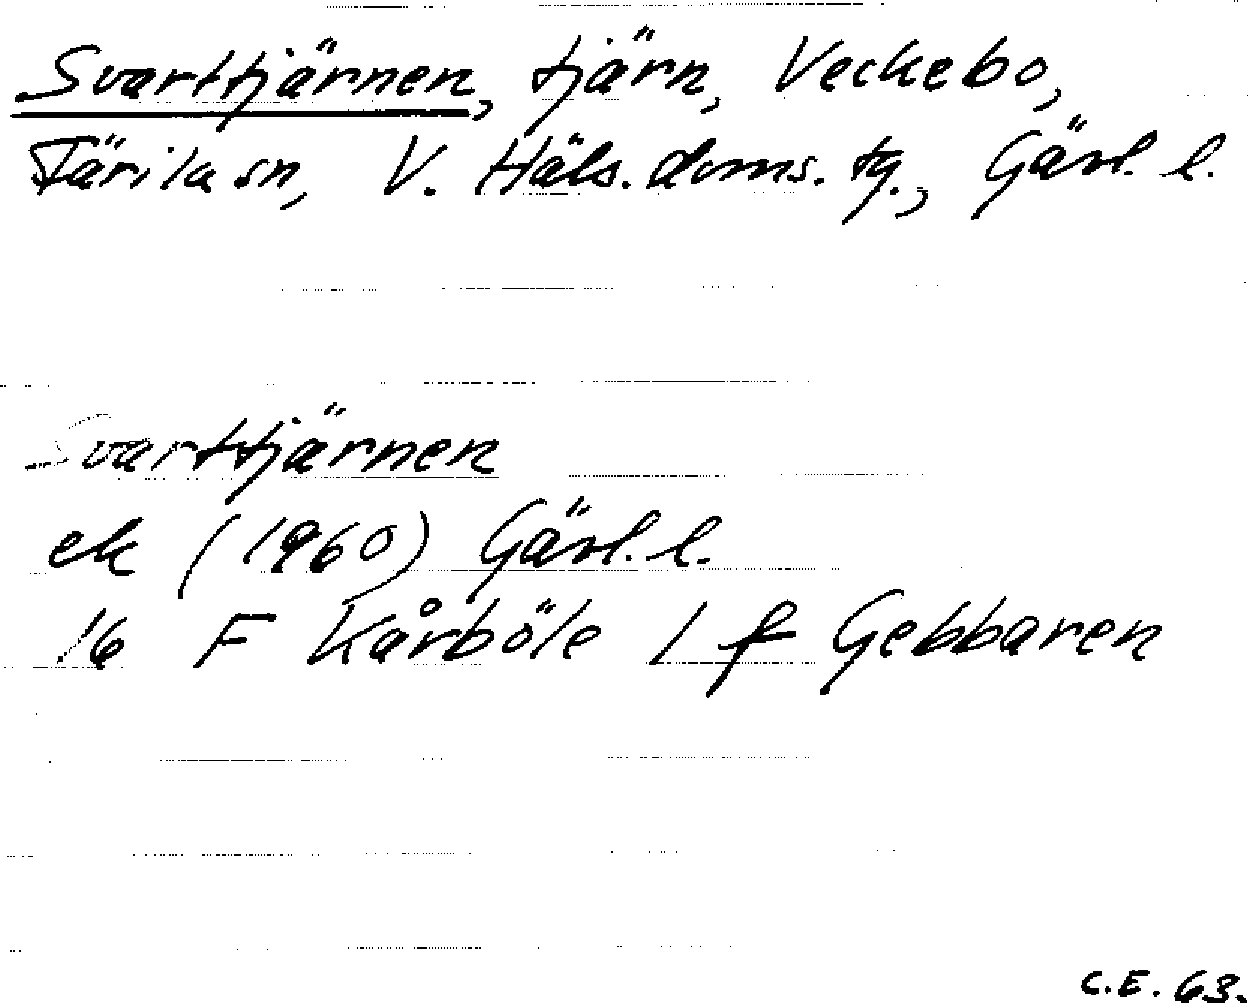 Svarttjärnen, tjärn, Veckebo,
Färila sn, V. Häls. doms. tg., Gävl. l.
Svarttjärnen
ek (1960) Gävl. l.
16 F Kårböle 1 f Gebbaren
C.E. 63.